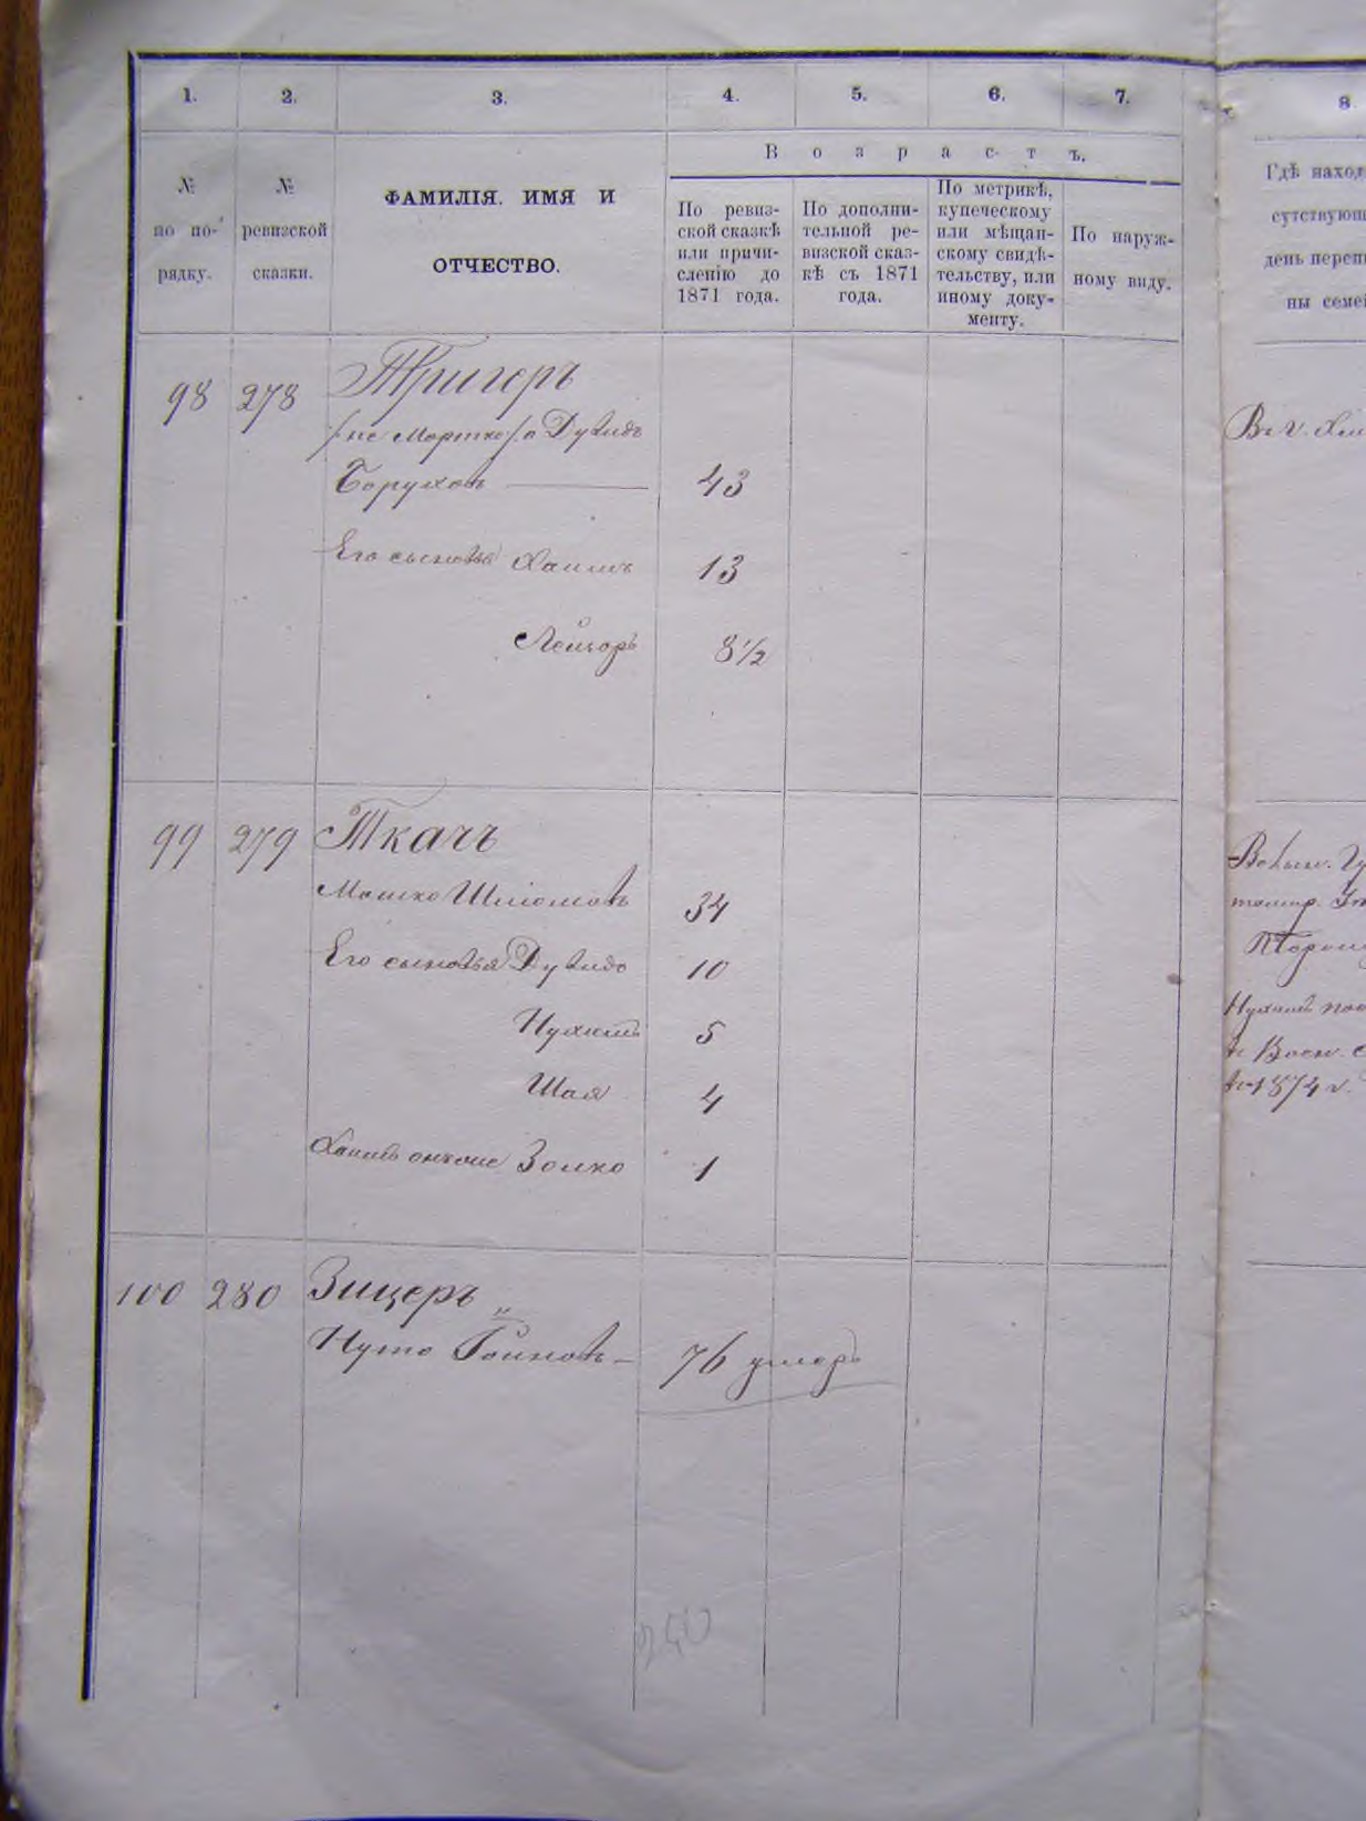 1.
2.
3.
4.
5.
6.
7.
8
Возрастъ.
№
по по-
рядку.
№
ревизской
сказки.
ФАМИЛІЯ. ИМЯ И
ОТЧЕСТВО.
По ревиз-
ской сказкѣ
или причи-
сленію до
1871 года.
По дополни-
тельной ре-
визской сказ-
кѣ съ 1871
года.
По метрикѣ,
купеческому
или мѣщан-
скому свидѣ-
тельству, или
иному доку-
менту.
По наруж-
ному виду.
Гдѣ наход
сутствующ
день переп
ны семе
98 278 Тригеръ
/не Мортко/ а Дувидъ
Боруховъ 43
Его сыновья Хаимъ 13
Лейзоръ 8½
99 279 Ткачъ
Мошко Шліомовъ 34
Его сыновья Дувидъ 10
Нухимъ 5
Шая 4
Хаимъ онъ же Зейко 1
100 280 Зицеръ
Нута 76 умеръ
Нухимъ
в 1874 г.
240